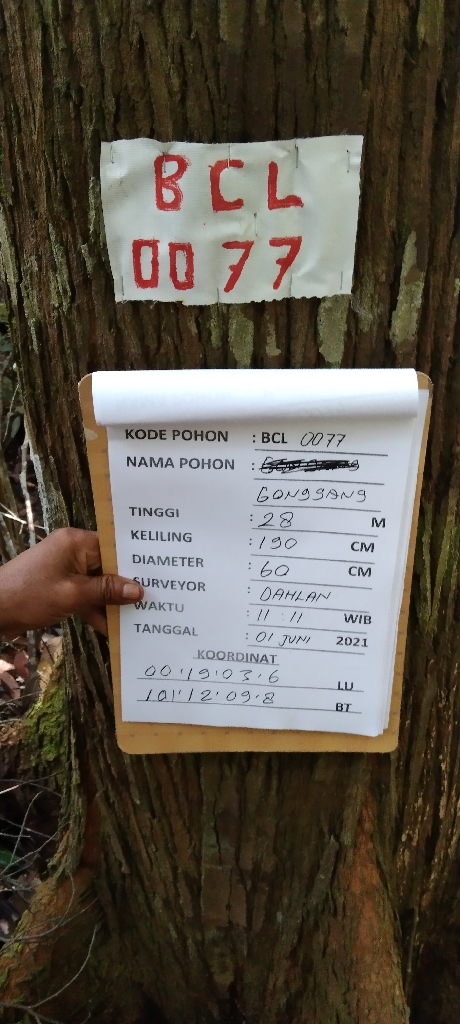 BCL
0077
KODE POHON : BCL 0077
NAMA POHON :
GONGGANG
TINGGI : 28 M
KELILING : 190 CM
DIAMETER : 60 CM
SURVEYOR : DAHLAN
WAKTU : 11 : 11 WIB
TANGGAL : 01 JUNI 2021
KOORDINAT
00°19'03.6 LU
101°12'09.8 BT